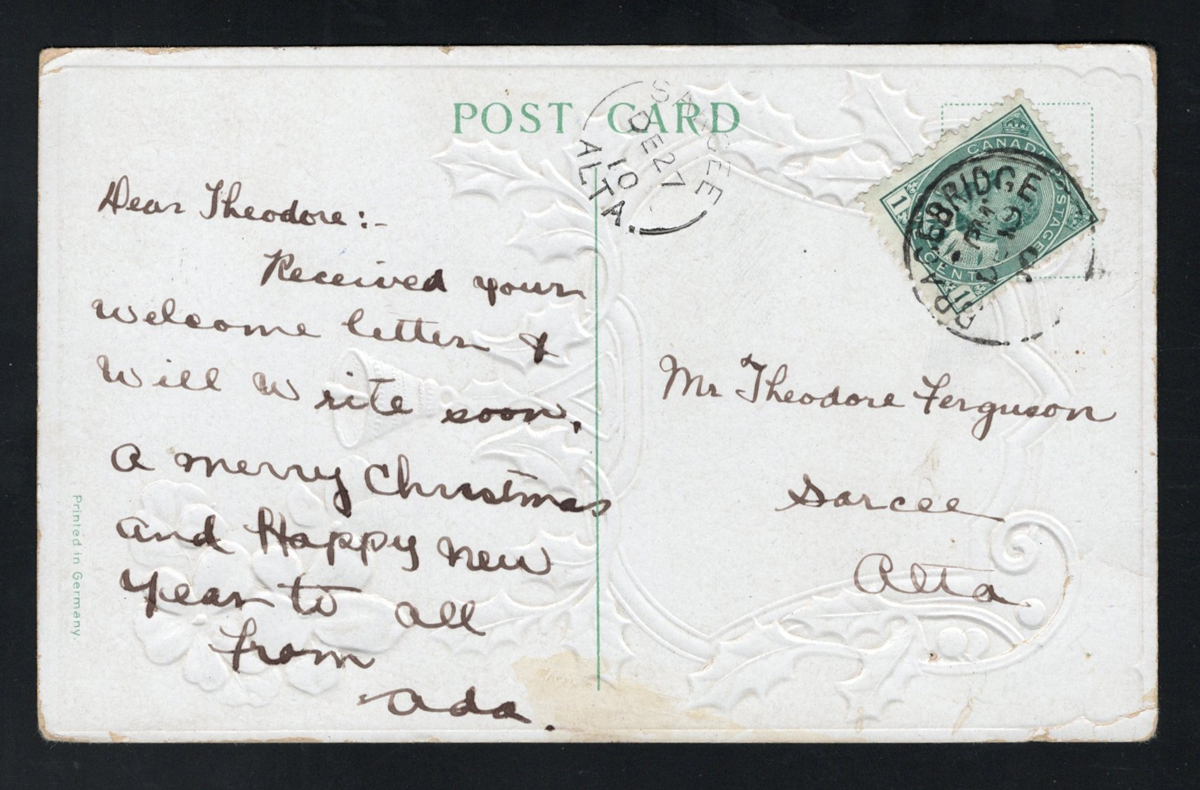 POST CARD
SARCEE
DE 27
10
ALTA.
CANADA POSTAGE
1 CENT 1
BRACEBRIDGE
PM
10
Dear Theodore:-
Received your
welcome letter &
will write soon.
A merry Christmas
and Happy new
year to all
from
Ada.
Mr Theodore Ferguson
Sarcee
Alta
Printed in Germany.